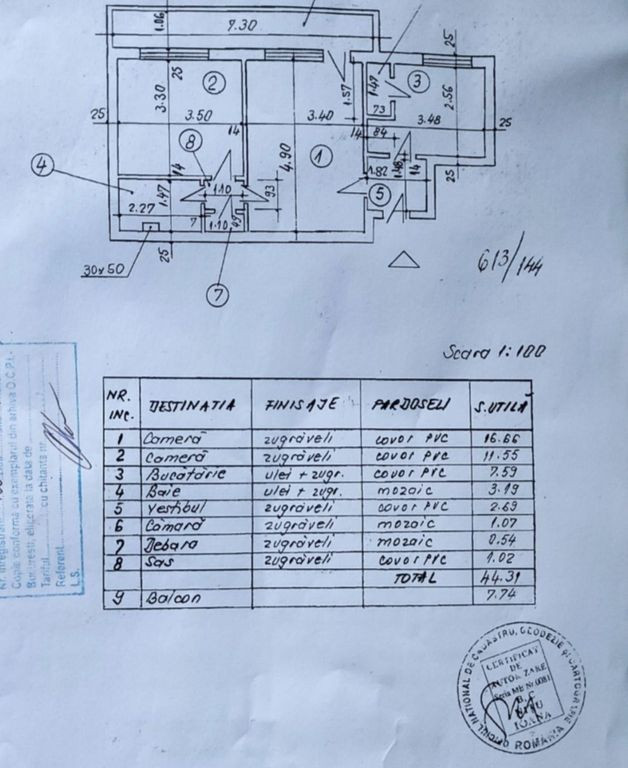 1.06
7.30
25
2
25
3.30
3.50
25
14
3.40
1.57
1.47
3
2.56
73
3.48
84
14
25
8
4
14
1.47
1.10
4.90
1
93
1.82
1.48
14
25
5
2.27
7
1.10
49
30x50
25
7
613/144
Scara 1:100
NR. INC. DESTINATIA FINISAJE PARDOSELI S.UTILĂ
1 Cameră zugrăveli covor PVC 16.66
2 Cameră zugrăveli covor PVC 11.55
3 Bucătărie ulei + zugr. covor PVC 7.59
4 Baie ulei + zugr. mozaic 3.19
5 Vestibul zugrăveli covor PVC 2.69
6 Cămară zugrăveli mozaic 1.07
7 Debara zugrăveli mozaic 0.54
8 Sas zugrăveli covor PVC 1.02
TOTAL 44.31
9 Balcon 7.74
Copie conformă cu exemplarul din arhiva O.C.P.I.
București, eliberată la data de
Tariful cu chitanța nr.
Referent
L.S.
OFICIUL NATIONAL DE CADASTRU, GEODEZIE ȘI CARTOGRAFIE
ROMANIA
CERTIFICAT
DE
AUTORIZARE
Seria MB Nr.0081
IOANA